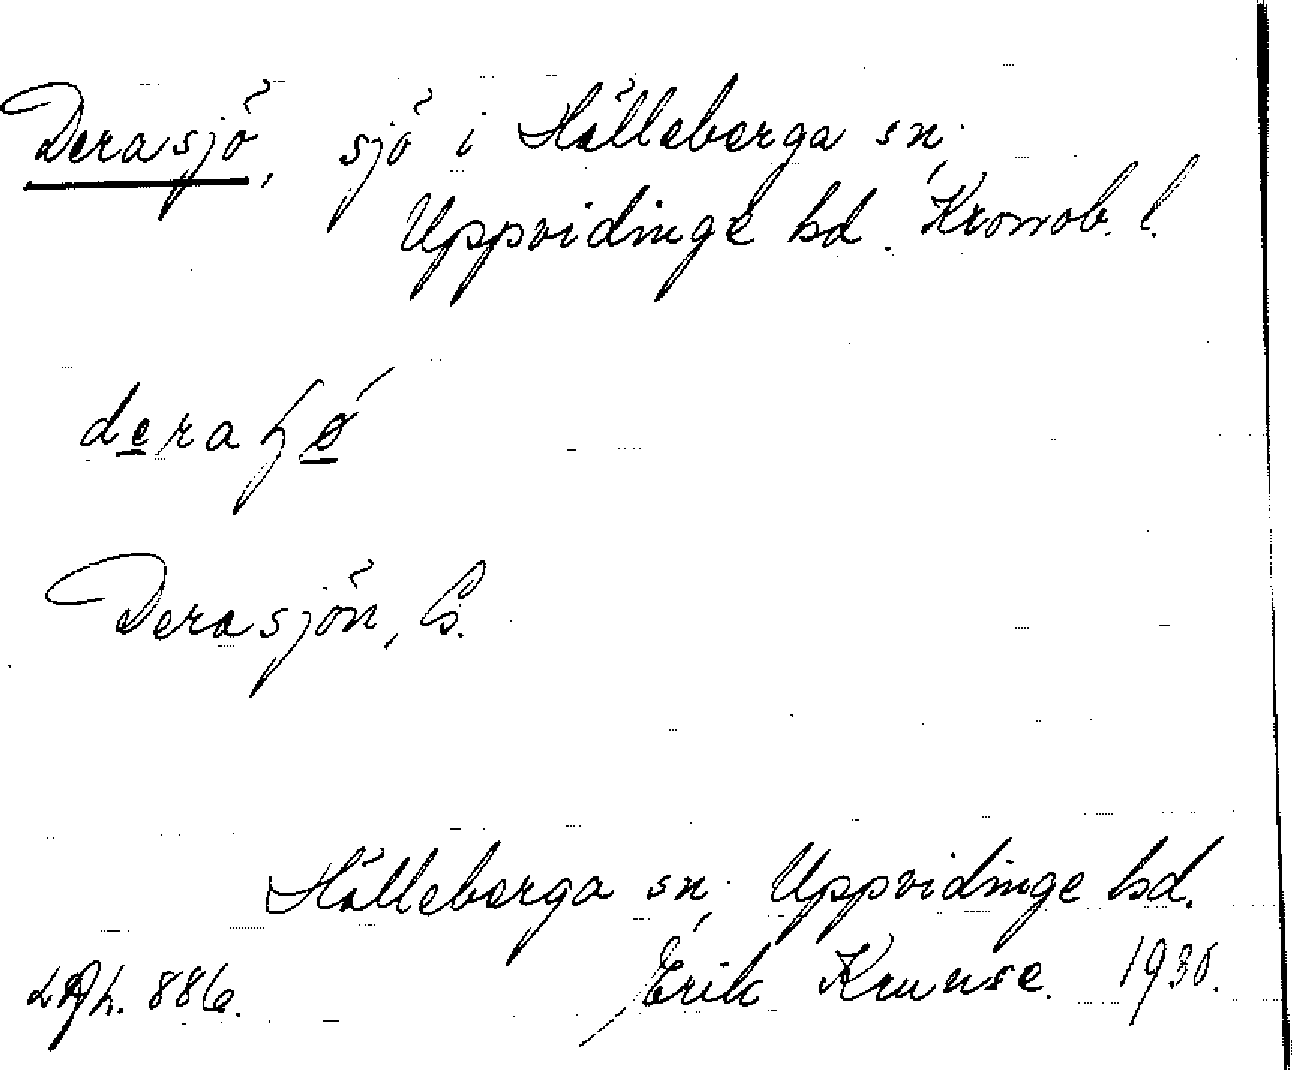 Derasjö, sjö i Hälleberga sn,
Uppvidinge hd. Kronob. l.
Derasjön, G.
Hälleberga sn, Uppvidinge hd.
886. Erik Kruuse. 1930.